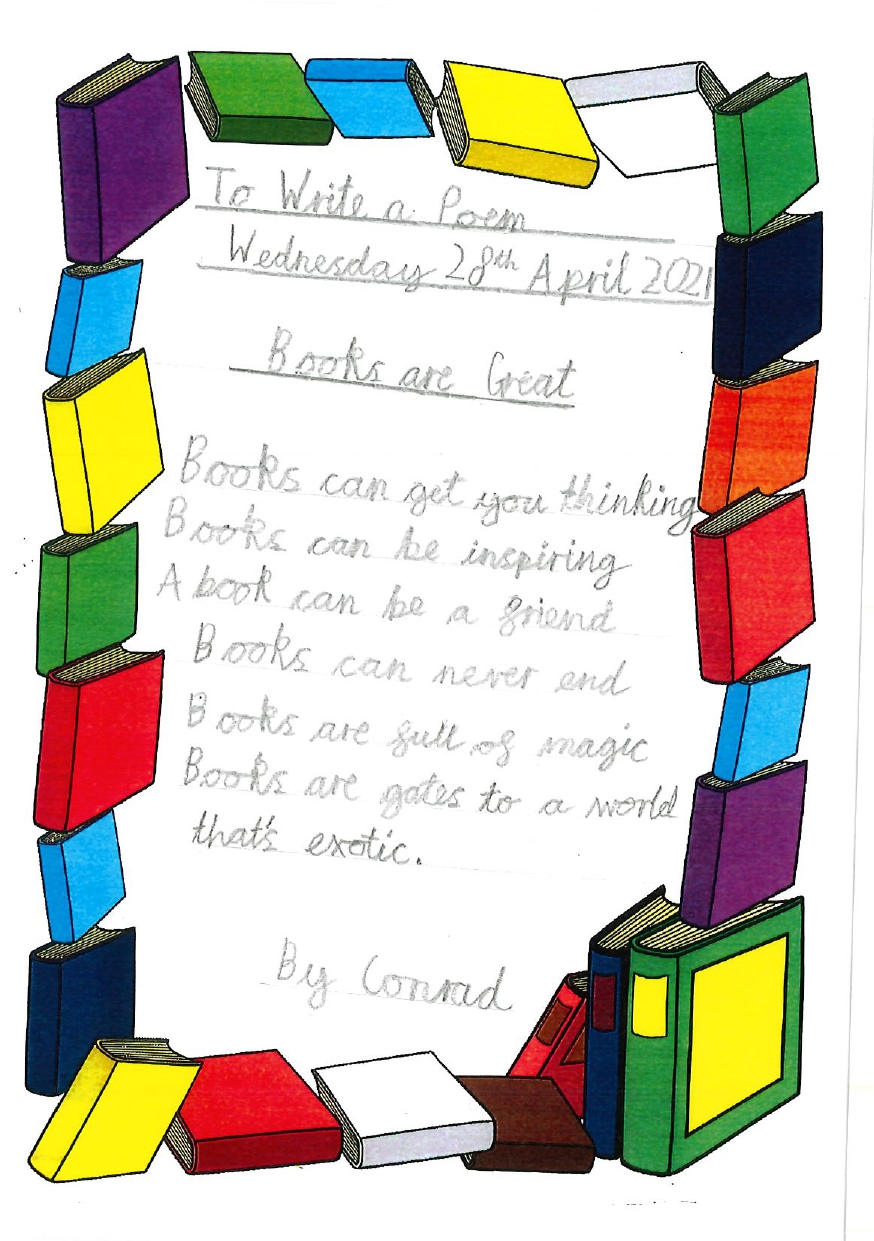 To Write a Poem
Wednesday 28th April 2021
Books are Great
Books can get you thinking
Books can be inspiring
A book can be a friend
Books can never end
Books are full of magic
Books are gates to a world
that's exotic.
By Conrad